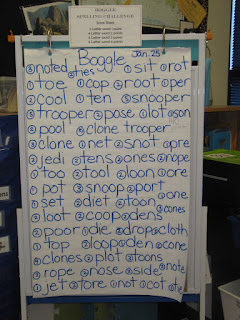 BOGGLE
SPELLING CHALLENGE
Boggle Jan. 25
noted ties sit rot
toe cop root per
cool ten snooper
trooper pose lot son
pool clone trooper
clone net snot pre
jedi tens ones nope
too tool loon ore
pot snoop port
set diet toon one
loot coop dens cones
poor die drops cloth
top loop den cone
clones plot toons
rope nose side note
jet tore not cot tie